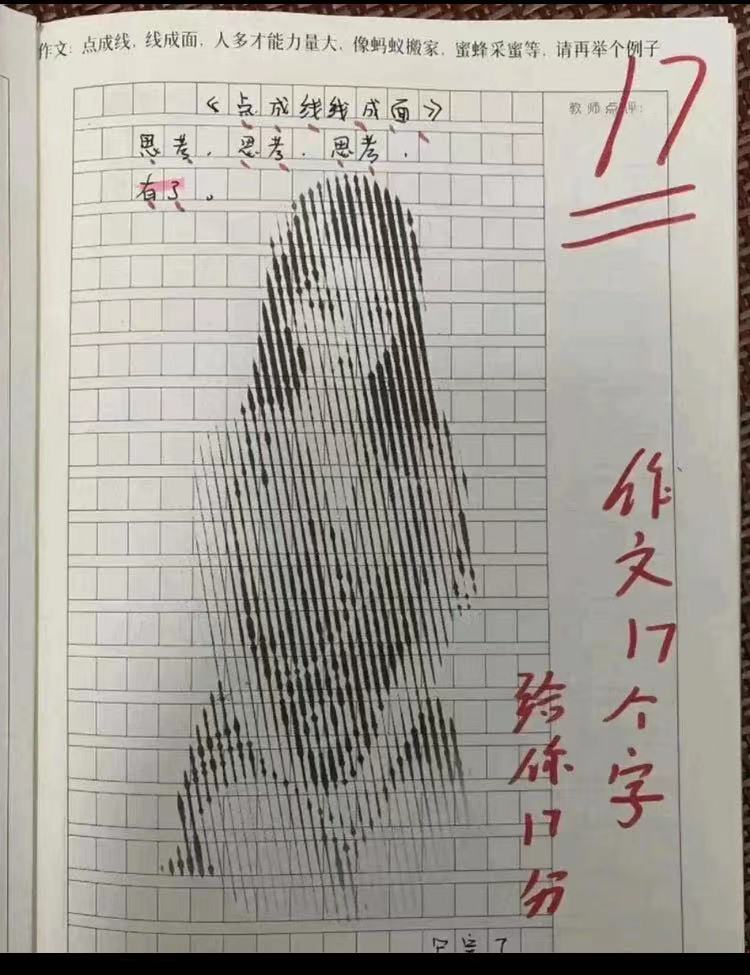 作文：点成线，线成面，人多才能力量大，像蚂蚁搬家，蜜蜂采蜜等，请再举个例子
教师点评：
17
《点成线线成面》
思考，思考，思考，
有了。
作文17个字
给你17分